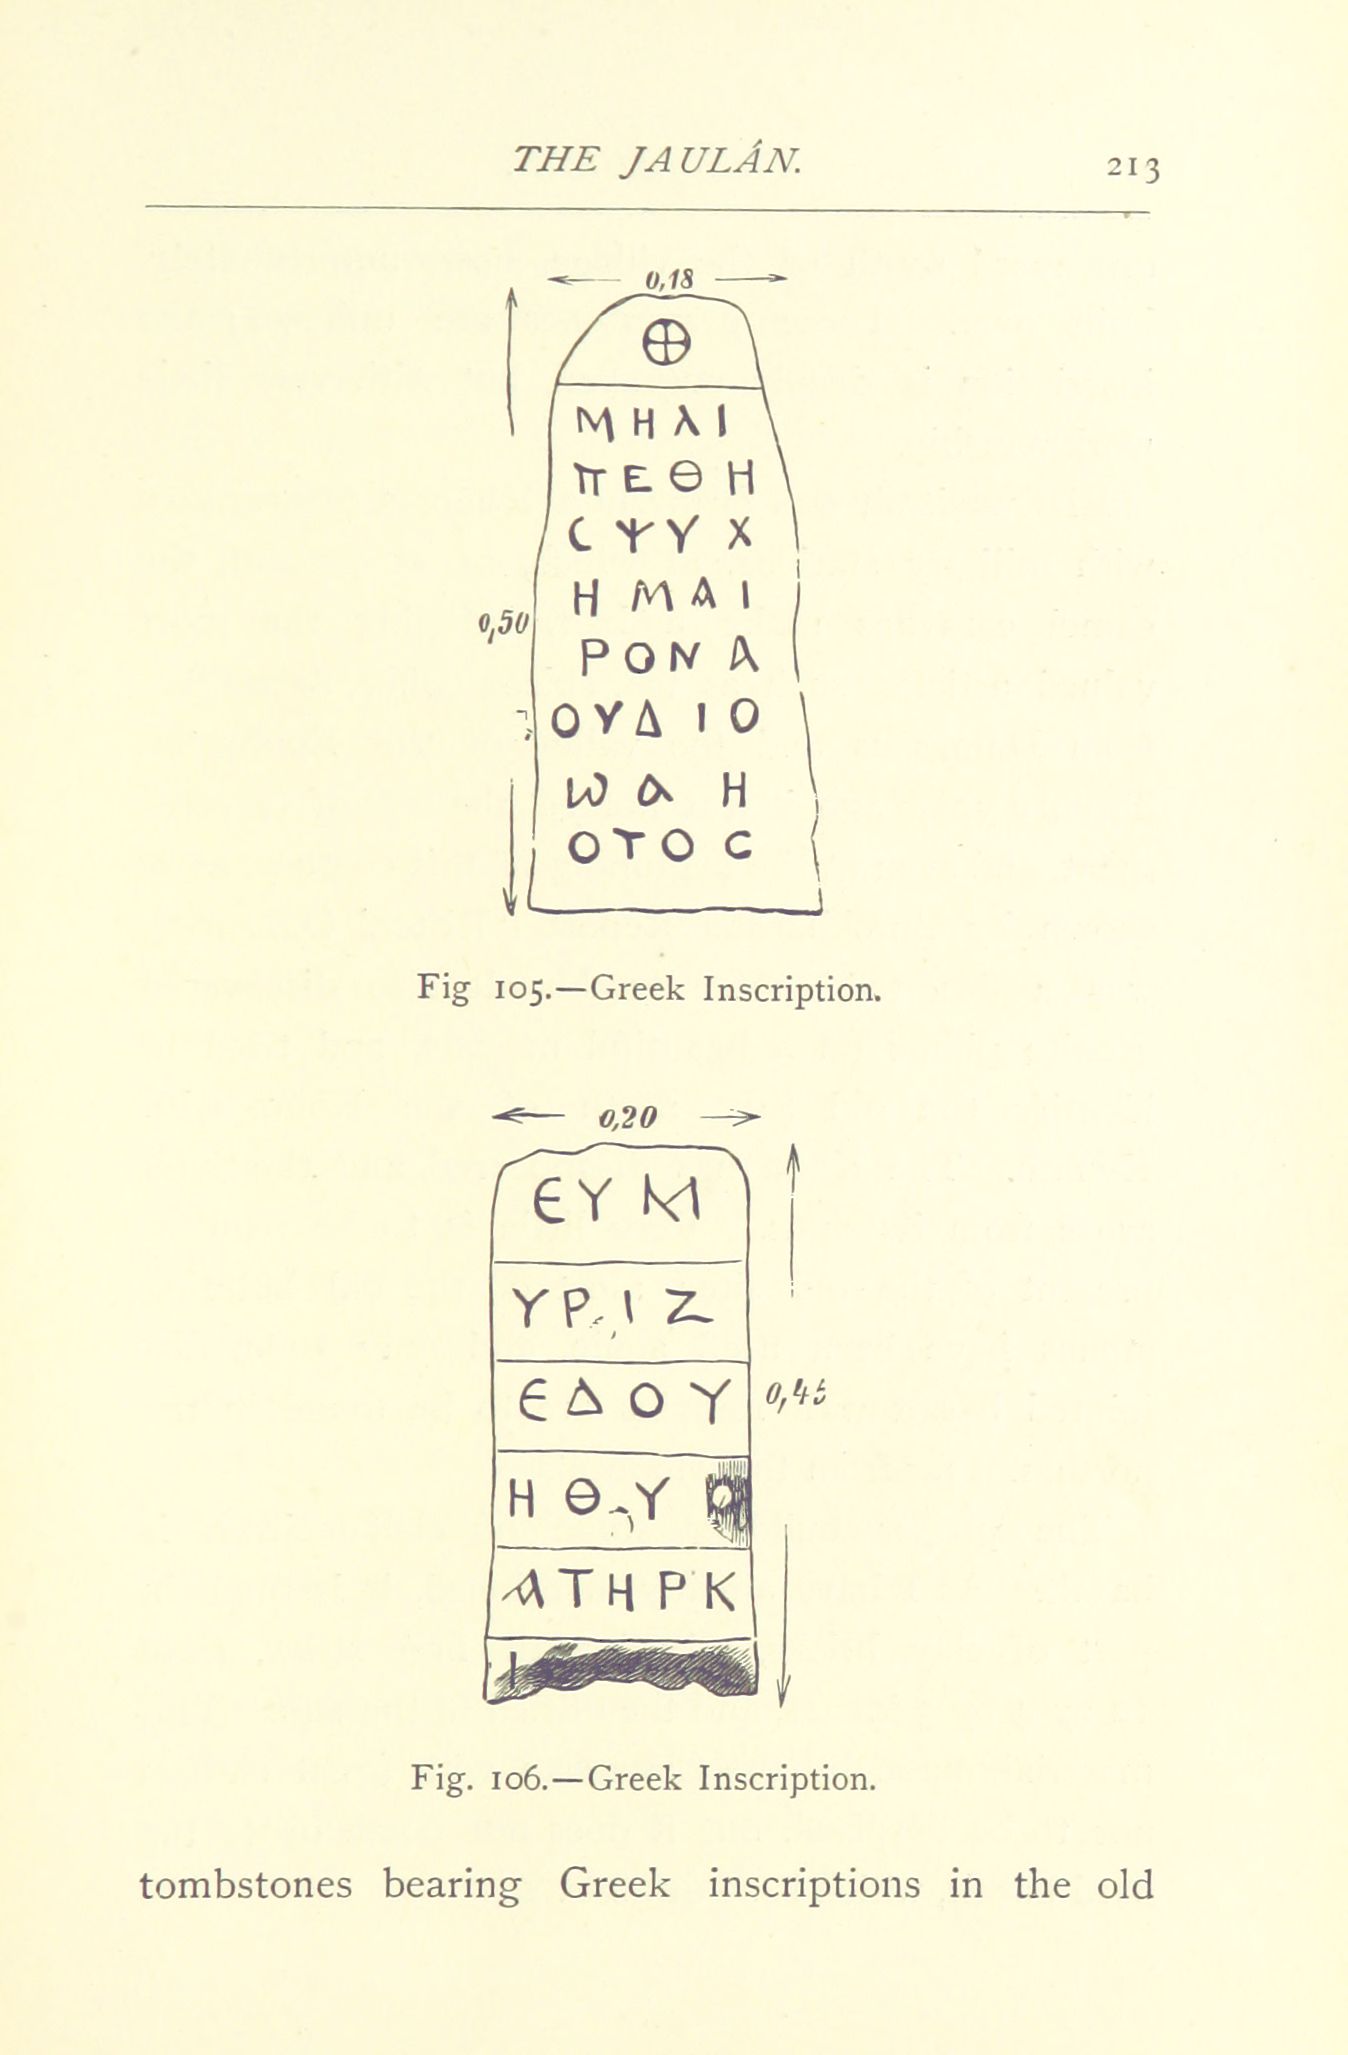 THE JAULÂN.
213
0,18
ΜΗΛΙ
ΠΕΘΗ
ϹΨΥΧ
ΗΜΑΙ
0,50
ΡΟΝΑ
ΟΥΔΙΟ
ωΑΗ
ΟΤΟϹ
Fig 105.—Greek Inscription.
0,20
ЄΥΜ
ΥΡΙΖ
ЄΔΟΥ
0,45
ΗΘΥ
ΑΤΗΡΚ
Ι
Fig. 106.—Greek Inscription.
tombstones bearing Greek inscriptions in the old